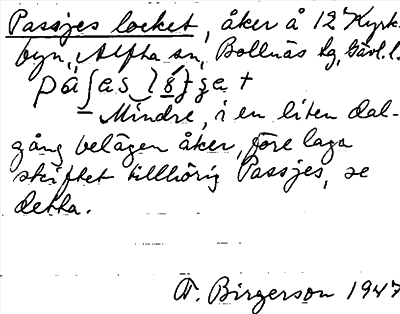 Passjes locket, åker å 12 Kyrk-
byn, Alfta sn, Bollnäs tg, Gävl. l.
– Mindre, i en liten dal-
gång belägen åker, före laga
skiftet tillhörig Passjes, se
detta.
T. Birgerson 1947